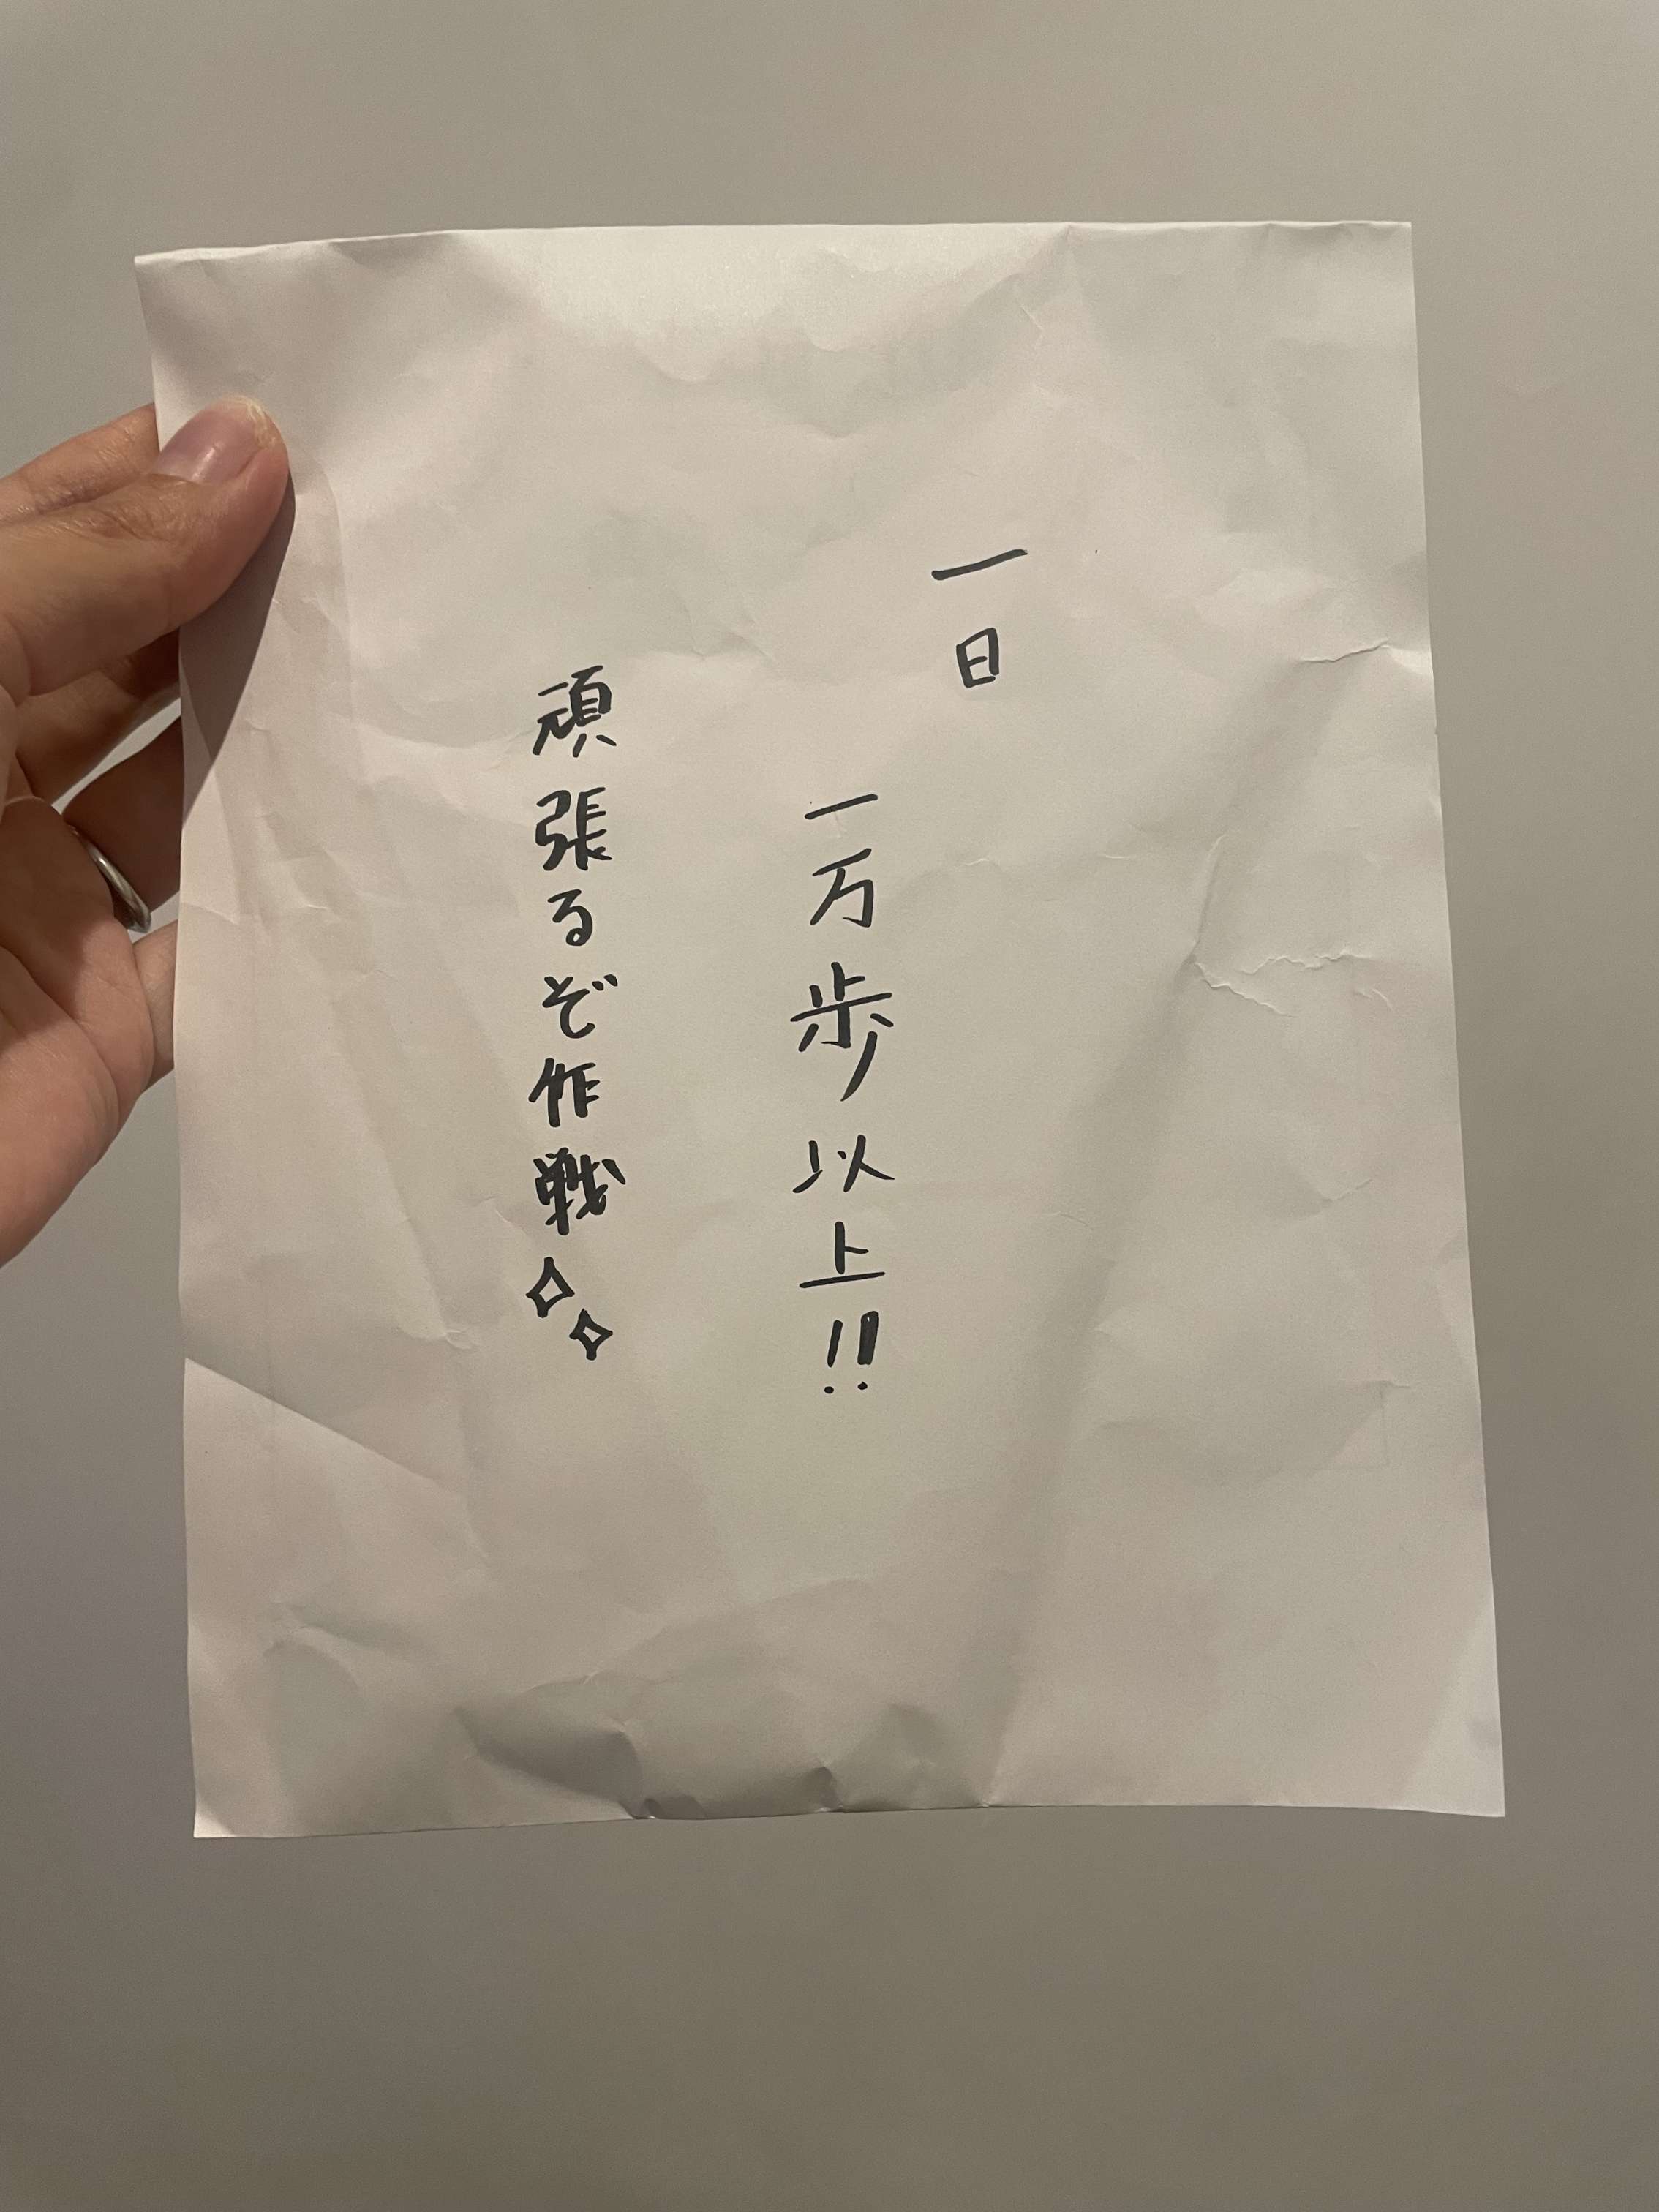 一日
一万歩以上!!
頑張るぞ作戦✧✧